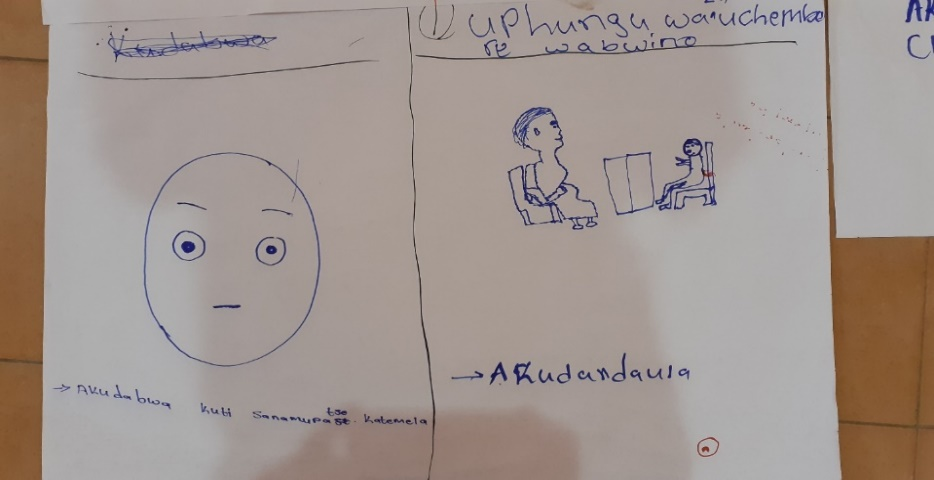 Kudabwa
→ AKudabwa kuti Sanamupatse Katemela
① uphungu wa uchembe
re wabwino
→ AKudandaula
AK